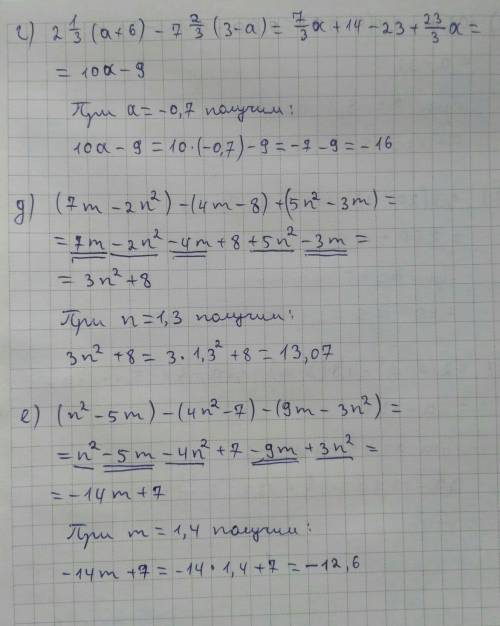 г) 2 1/3 (a+6) - 7 2/3 (3-a) = 7/3 a + 14 - 23 + 23/3 a =
= 10a - 9
При a = -0,7 получим:
10a - 9 = 10·(-0,7) - 9 = -7 - 9 = -16
д) (7m - 2n²) - (4m - 8) + (5n² - 3m) =
= 7m - 2n² - 4m + 8 + 5n² - 3m =
= 3n² + 8
При n = 1,3 получим:
3n² + 8 = 3·1,3² + 8 = 13,07
е) (n² - 5m) - (4n² - 7) - (9m - 3n²) =
= n² - 5m - 4n² + 7 - 9m + 3n² =
= -14m + 7
При m = 1,4 получим:
-14m + 7 = -14·1,4 + 7 = -12,6